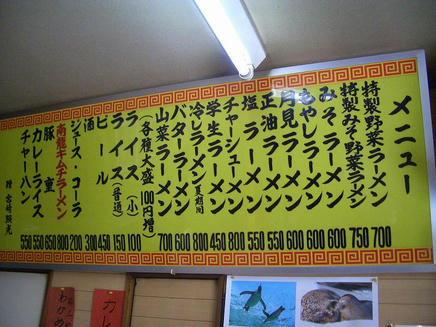 メニュー
特製野菜ラーメン 700
特製みそ野菜ラーメン 750
みそラーメン 600
もやしラーメン 600
月見ラーメン 600
正油ラーメン 550
塩ラーメン 550
チャーシューメン 800
学生ラーメン 450
冷しラーメン 夏期間 800
バターラーメン 600
山菜ラーメン 700
(各種大盛100円増)
ライス (小) 100
ライス (普通) 150
ビール 450
酒 300
ジュース・コーラ 200
南龍キムチラーメン 800
豚重 650
カレーライス 550
チャーハン 550
カレ
わかめ